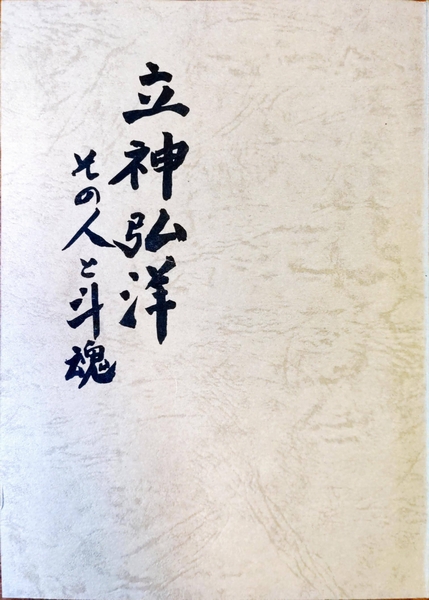 立神弘洋
その人と斗魂